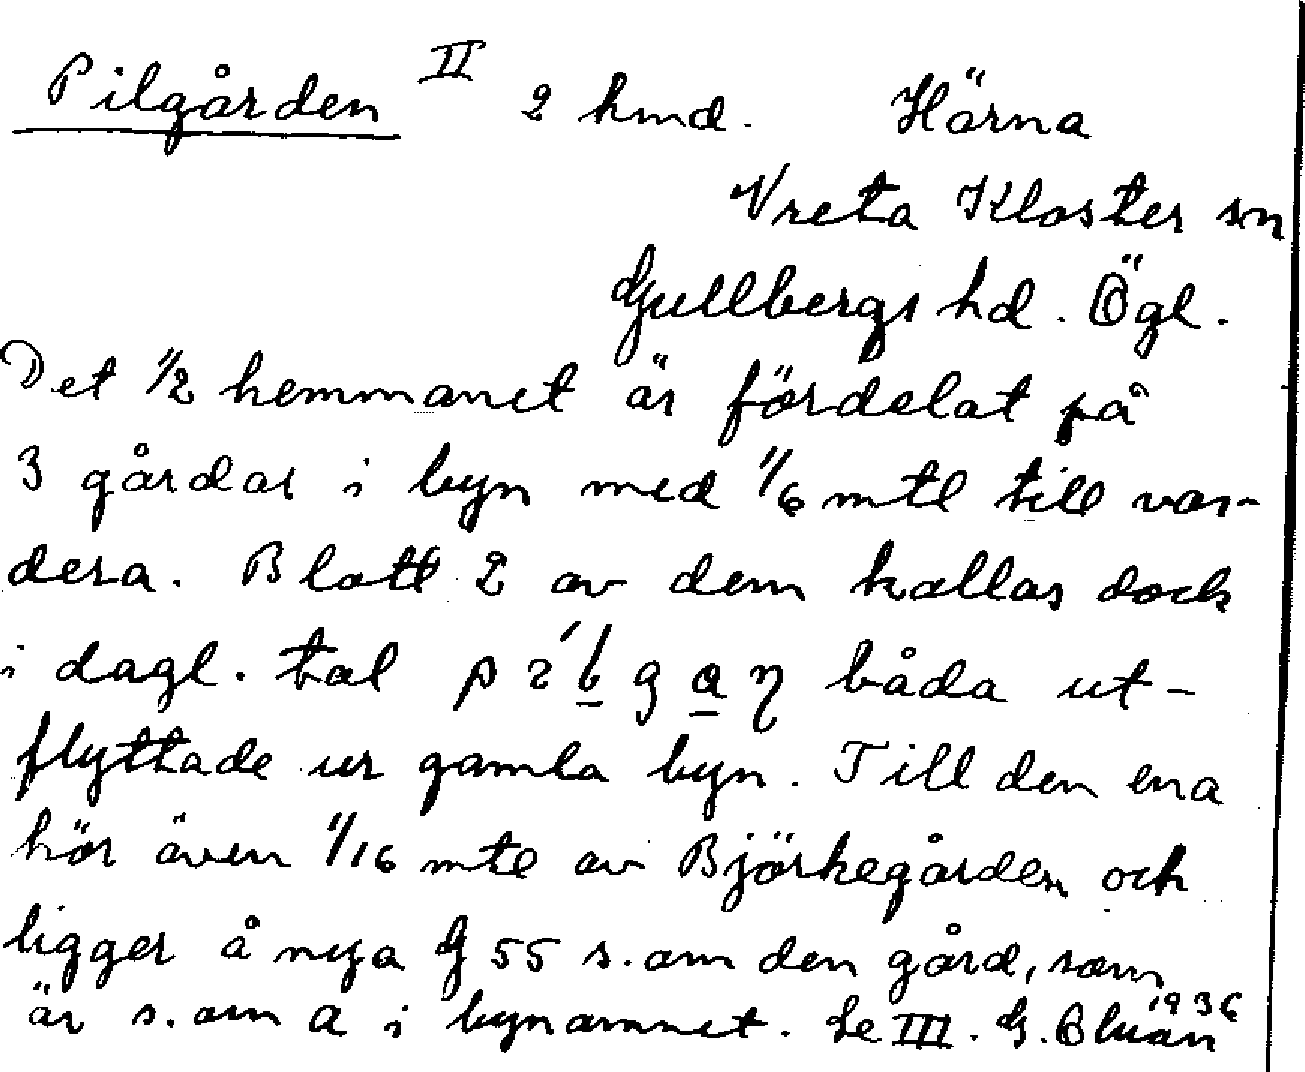 Pilgården II 2 hmd. Härna
Vreta Kloster sn
Gullbergs hd. Ögl.
Det 1/2 hemmanet är fördelat på
3 gårdar i byn med 1/6 mtl till var-
dera. Blott 2 av dem kallas dock
i dagl. tal båda ut-
flyttade ur gamla byn. Till den ena
hör även 1/16 mtl av Björkegården och
ligger å nya G 55 s. om den gård, som
är s. om a i bynamnet. Se III. G. 1936